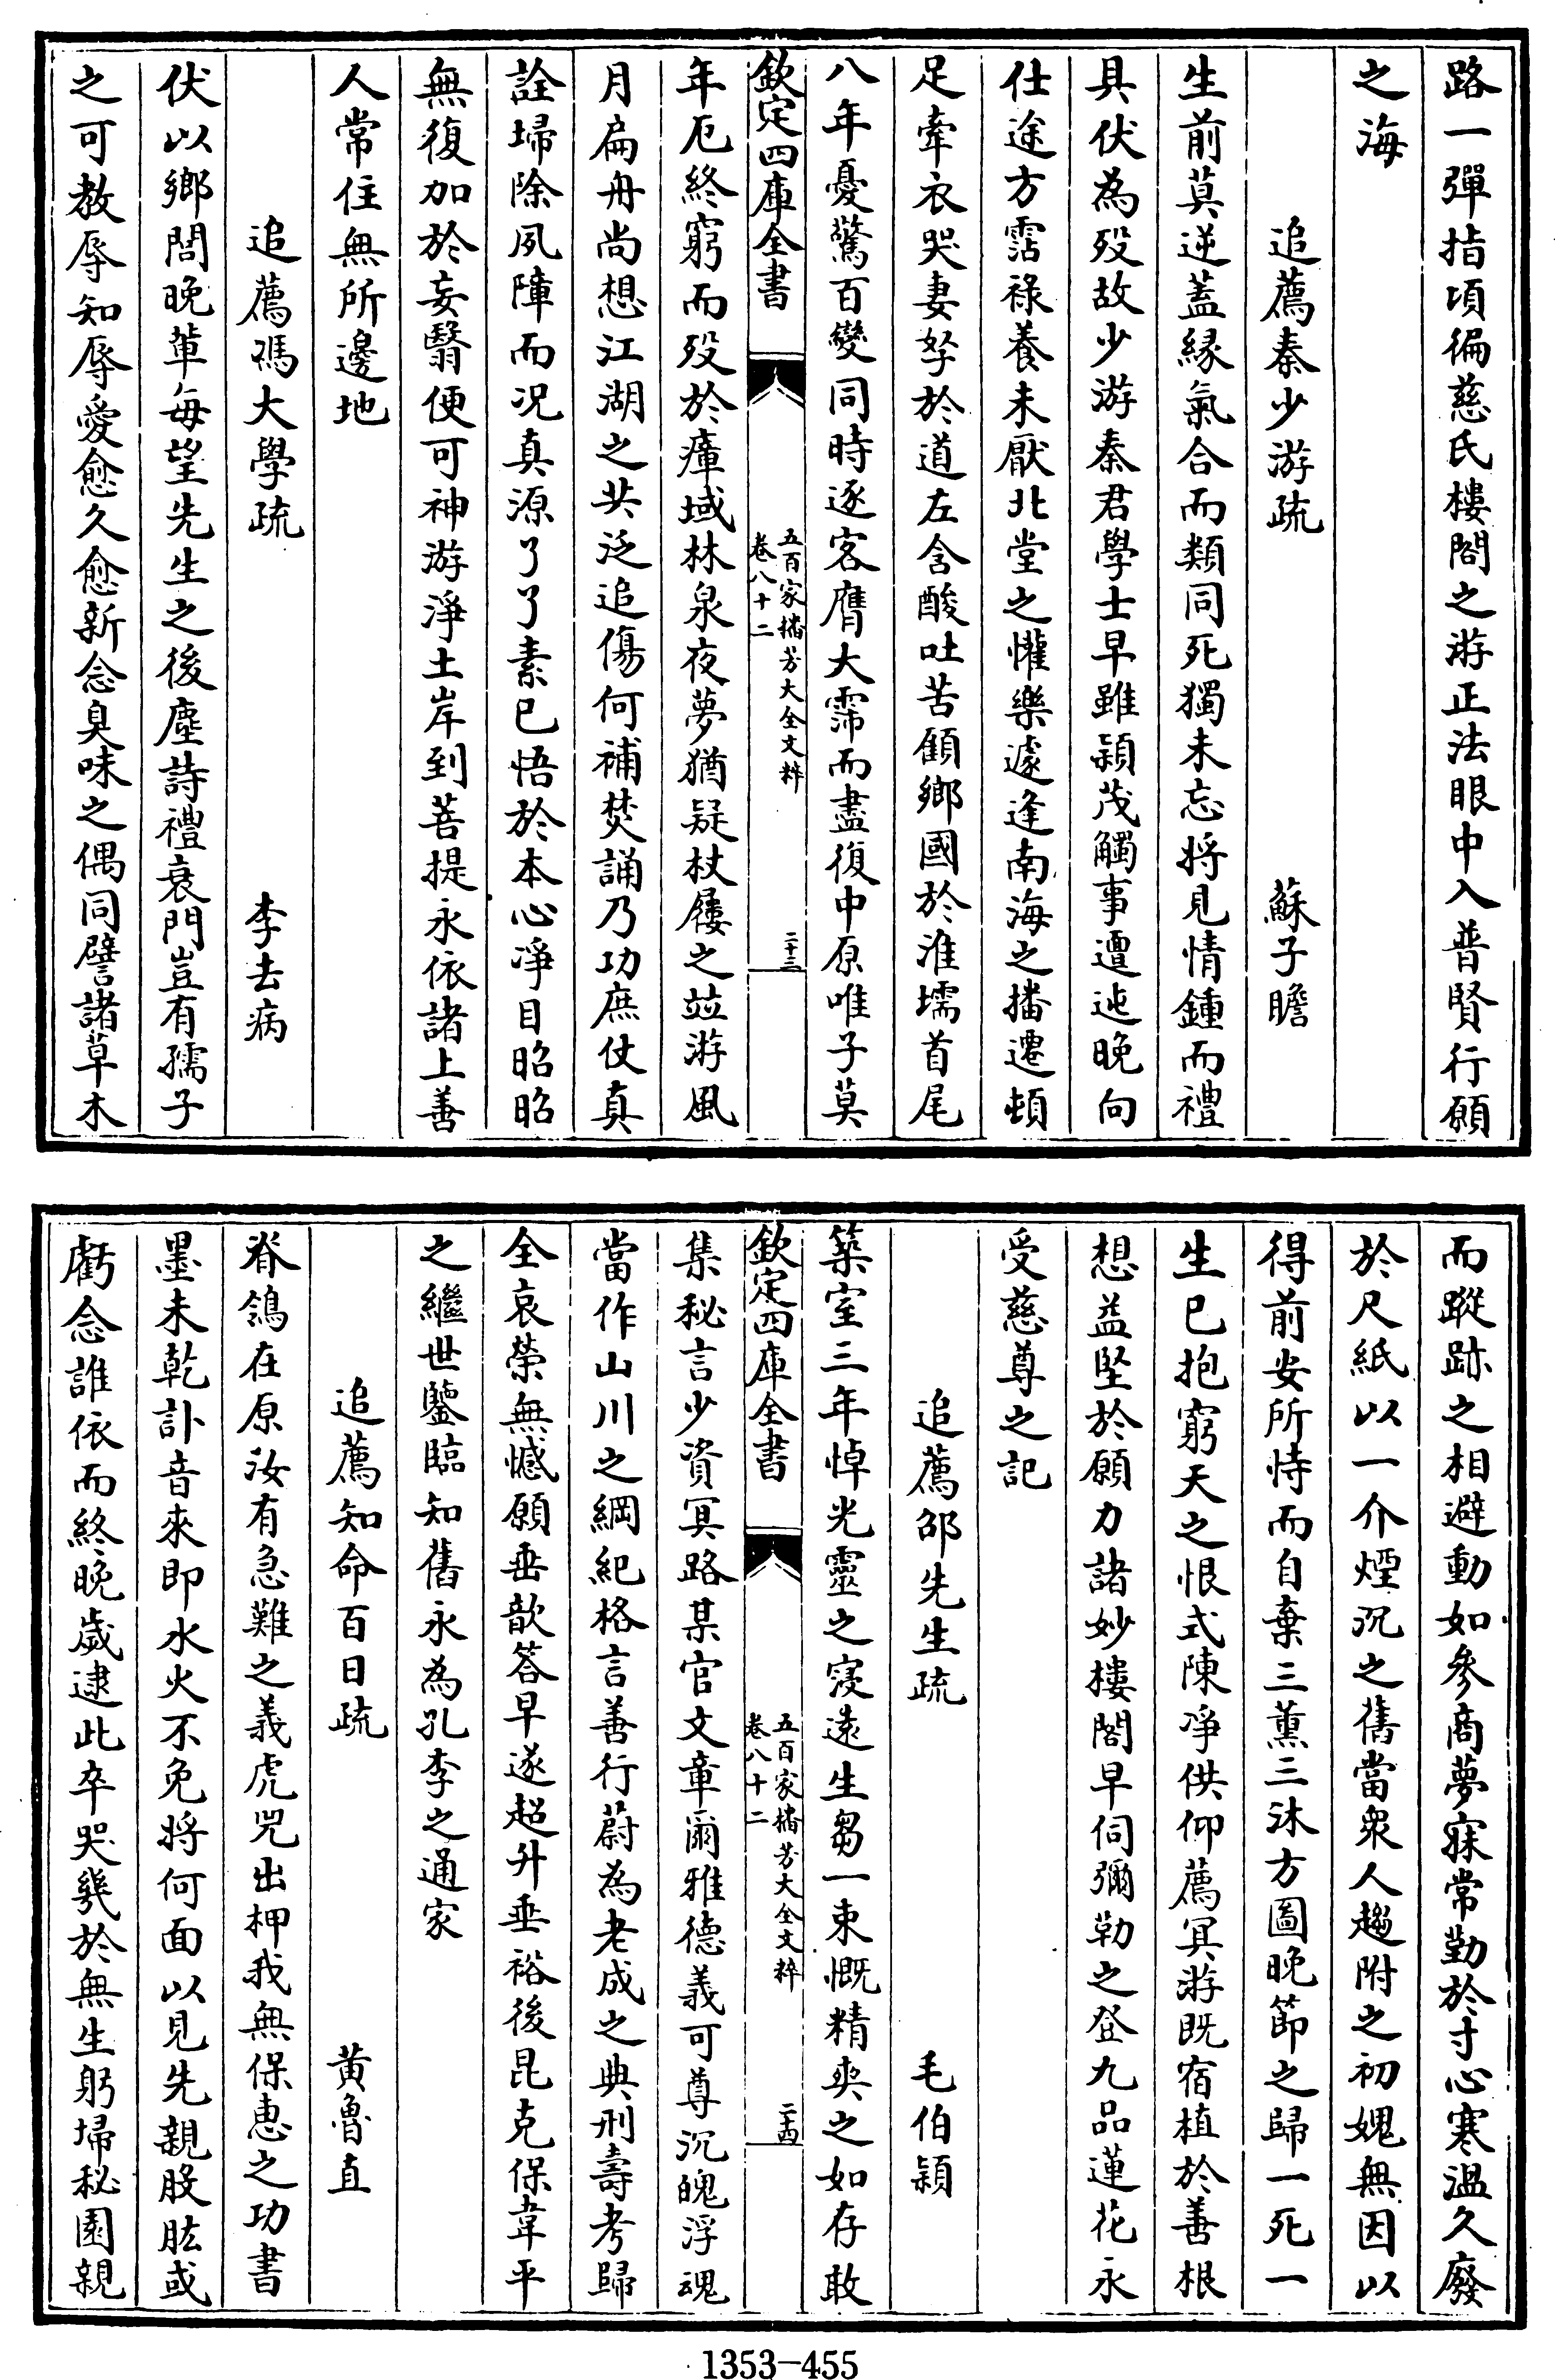 路一彈指頃徧慈氏樓閣之游正法眼中入普賢行願
之海
追薦秦少游疏 蘇子瞻
生前莫逆蓋緣氣合而類同死獨未忘將見情鍾而禮
具伏為歿故少游秦君學士早雖穎茂觸事邅迍晩向
仕途方霑祿養未厭北堂之懽樂遽逢南海之播遷頓
足牽衣哭妻孥於道左含酸吐苦顧鄉國於淮壖首尾
八年憂驚百變同時逐客膺大霈而盡復中原唯子莫
欽定四庫全書 五百家播芳大全文粹 卷八十二 二十三
年厄終窮而歿於瘴域林泉夜夢猶疑杖屨之竝游風
月扁舟尚想江湖之共泛追傷何補焚誦乃功庶仗真
詮埽除夙障而况真源了了素已悟於本心凈目昭昭
無復加於妄翳便可神游淨土岸到菩提永依諸上善
人常住無所邊地
追薦馮大學疏 李去病
伏以鄉閭晚輩每望先生之後塵詩禮衰門豈有孺子
之可教辱知辱愛愈久愈新念臭味之偶同譬諸草木
而蹤跡之相避動如參商夢寐常勤於寸心寒溫久廢
於尺紙以一介煙沉之舊當衆人趨附之初媿無因以
得前安所恃而自棄三薰三沐方圖晚節之歸一死一
生已抱窮天之恨式陳凈供仰薦冥游既宿植於善根
想益堅於願力諸妙樓閣早伺彌勒之登九品蓮花永
受慈尊之記
追薦邵先生疏 毛伯穎
築室三年悼光靈之寖遠生芻一束慨精爽之如存敢
欽定四庫全書 五百家播芳大全文粹 卷八十二 二十四
集秘言少資冥路某官文章爾雅德義可尊沉魄浮魂
當作山川之綱紀格言善行蔚為老成之典刑壽考歸
全哀榮無憾願垂歆答早遂超升垂裕後昆克保韋平
之繼世鑒臨知舊永為孔李之通家
追薦知命百日疏 黄魯直
脊鴒在原汝有急難之義虎兕出柙我無保惠之功書
墨未乾訃音來即水火不免將何面以見先親股肱或
虧念誰依而終晚歲逮此卒哭幾於無生躬埽秘園親
1353-455